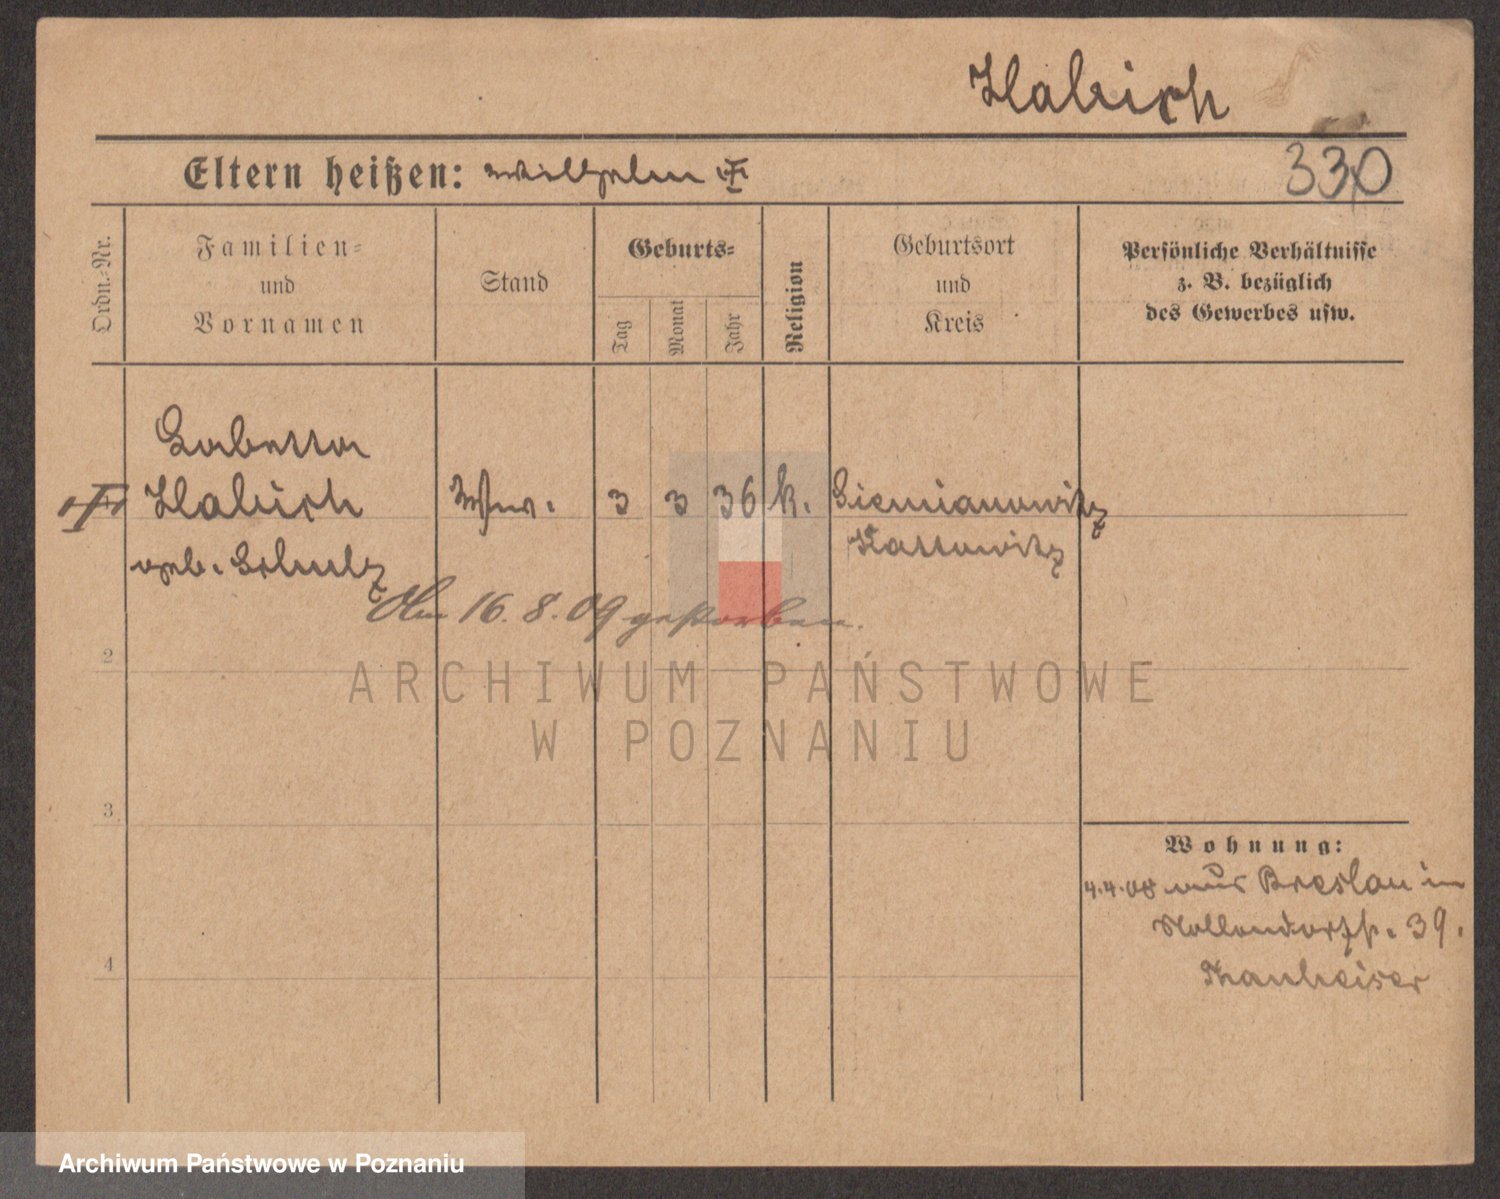 Habisch
Eltern heißen: Wilhelm
330
Ordn.-Nr.
Familien-
und
Vornamen
Stand
Geburts-
Tag
Monat
Jahr
Religion
Geburtsort
und
Kreis
Persönliche Verhältnisse
z. B. bezüglich
des Gewerbes usw.
Habisch
geb. Schulz
Wwe.
3
3
36
k.
Siemianowitz
Kattowitz
Am 16. 8. 09 gestorben.
2
3.
4
ARCHIWUM PAŃSTWOWE
W POZNANIU
Wohnung:
4.4.08 aus Breslau in
39.
Archiwum Państwowe w Poznaniu